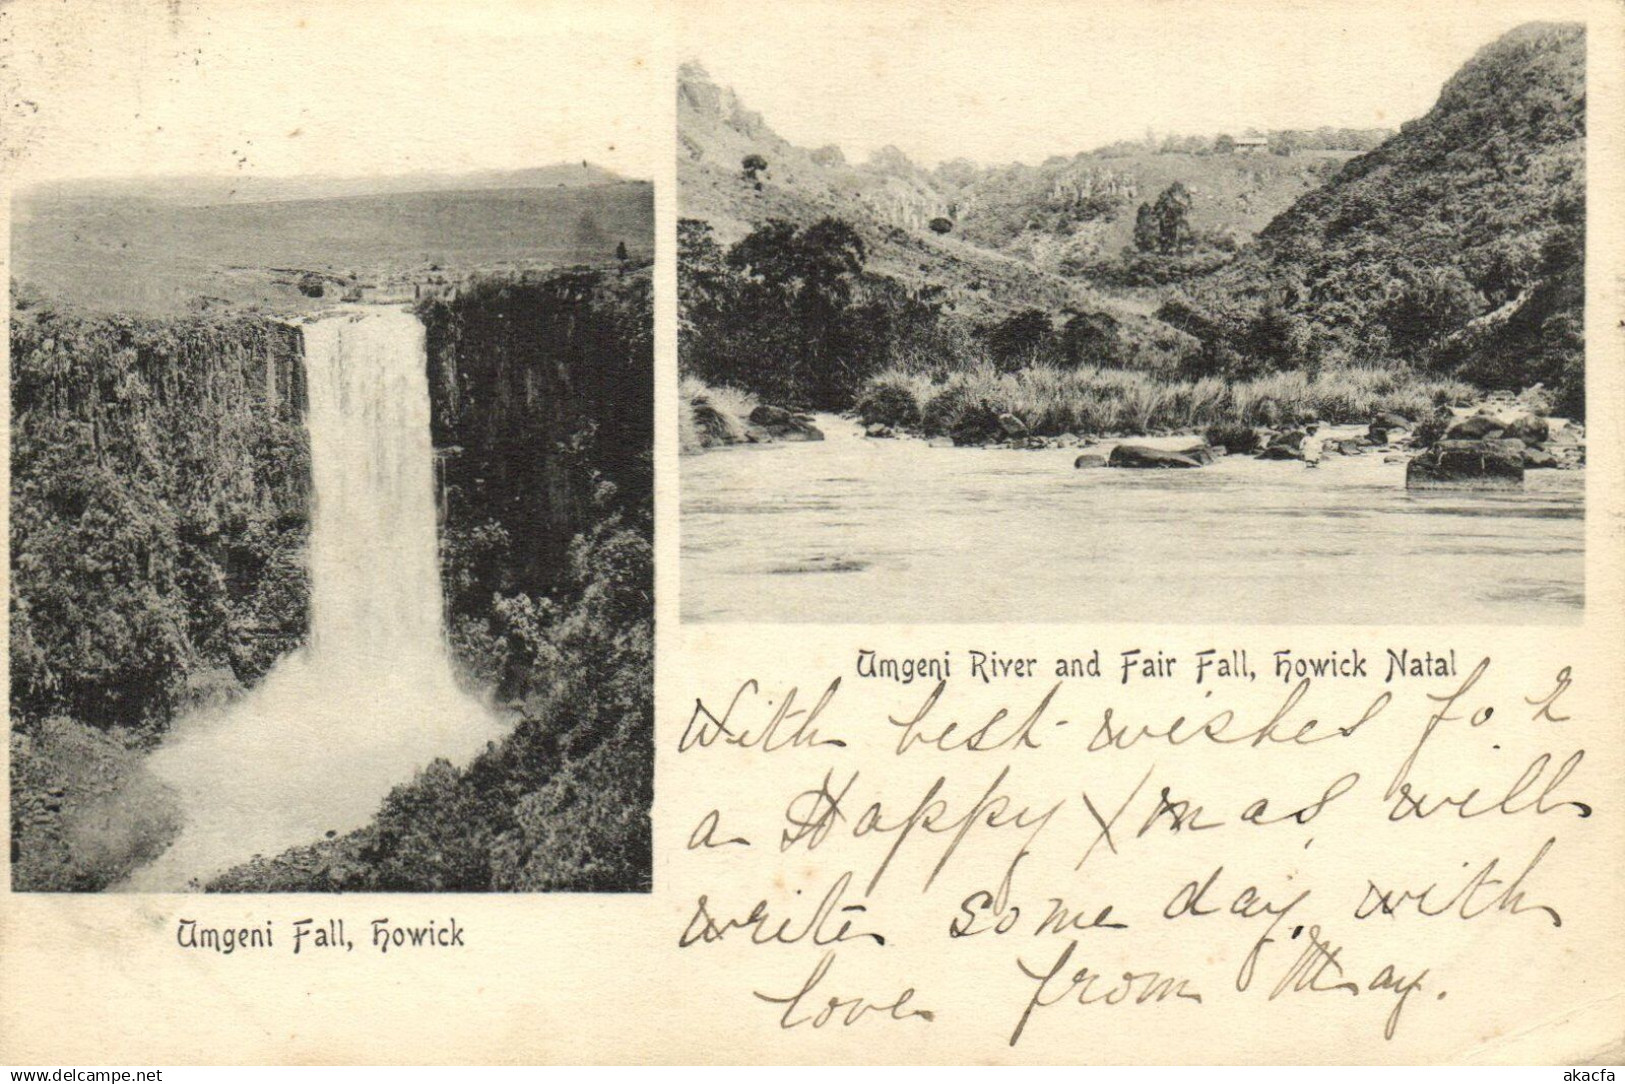 Umgeni Fall, Howick
Umgeni River and Fair Fall, Howick Natal
With best wishes for
a Happy Xmas, will
write some day, with
love from May.
akacfa